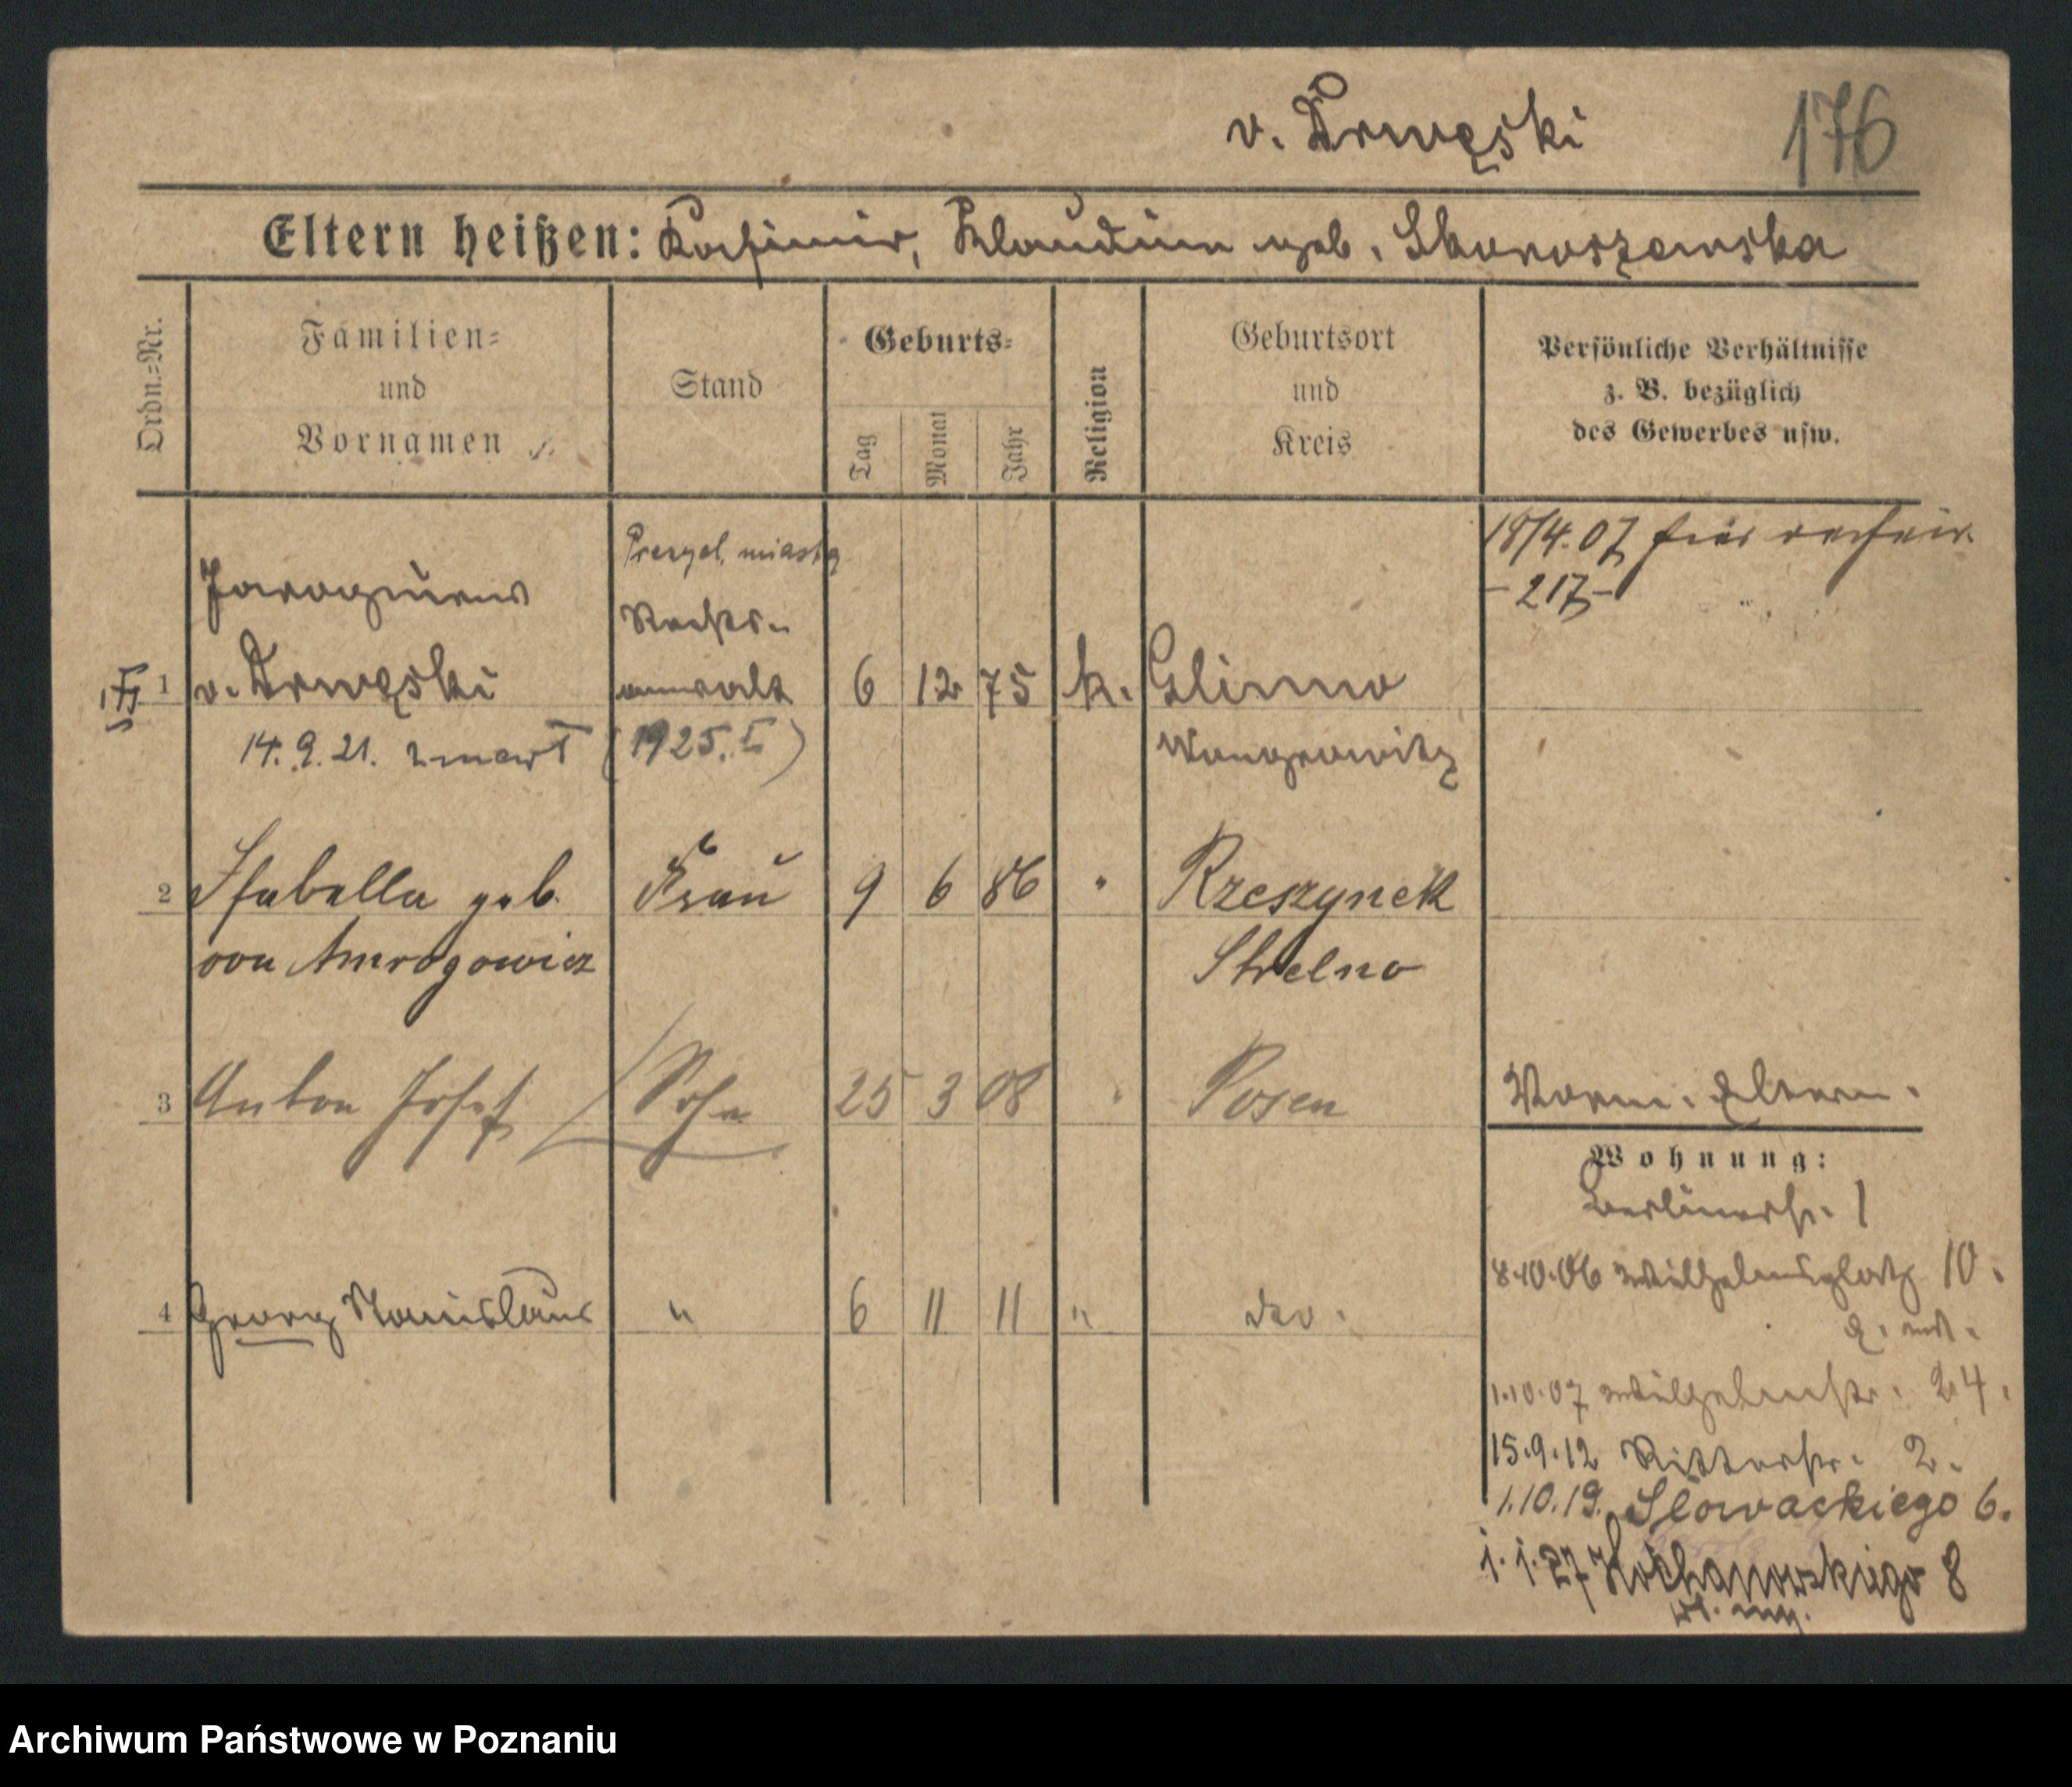 v. Drwęski 176
Eltern heißen: Kasimir, Klaudina geb. Skoroszewska
Ordn.=Nr.
Familien=
und
Vornamen
Stand
Geburts=
Tag
Monat
Jahr
Religion
Geburtsort
und
Kreis
Persönliche Verhältnisse
z. B. bezüglich
des Gewerbes usw.
Prezyd. miasta
18/4.07
-217-
Jarogniew
Rechts-
1 v. Drwęski anwalt 6 12 75 k. Glinno
14.9.21. zmarł (1925. I) Wongrowitz
2 Isabella geb. Frau 9 6 86 " Rzeszynek
von Amrogowicz Strelno
3 Anton Josef Sohn 25 3 08 " Posen
4 Georg Stanislaus " 6 11 11 " dto.
Vorm. Eltern.
Wohnung:
Berlinerstr. 1
8.10.06 Wilhelmsplatz 10.
1.10.07 Wilhelmstr. 24.
15.9.12 Ritterstr. 2.
1.10.19. Słowackiego 6.
1.1.27 Kochanowskiego 8
Archiwum Państwowe w Poznaniu